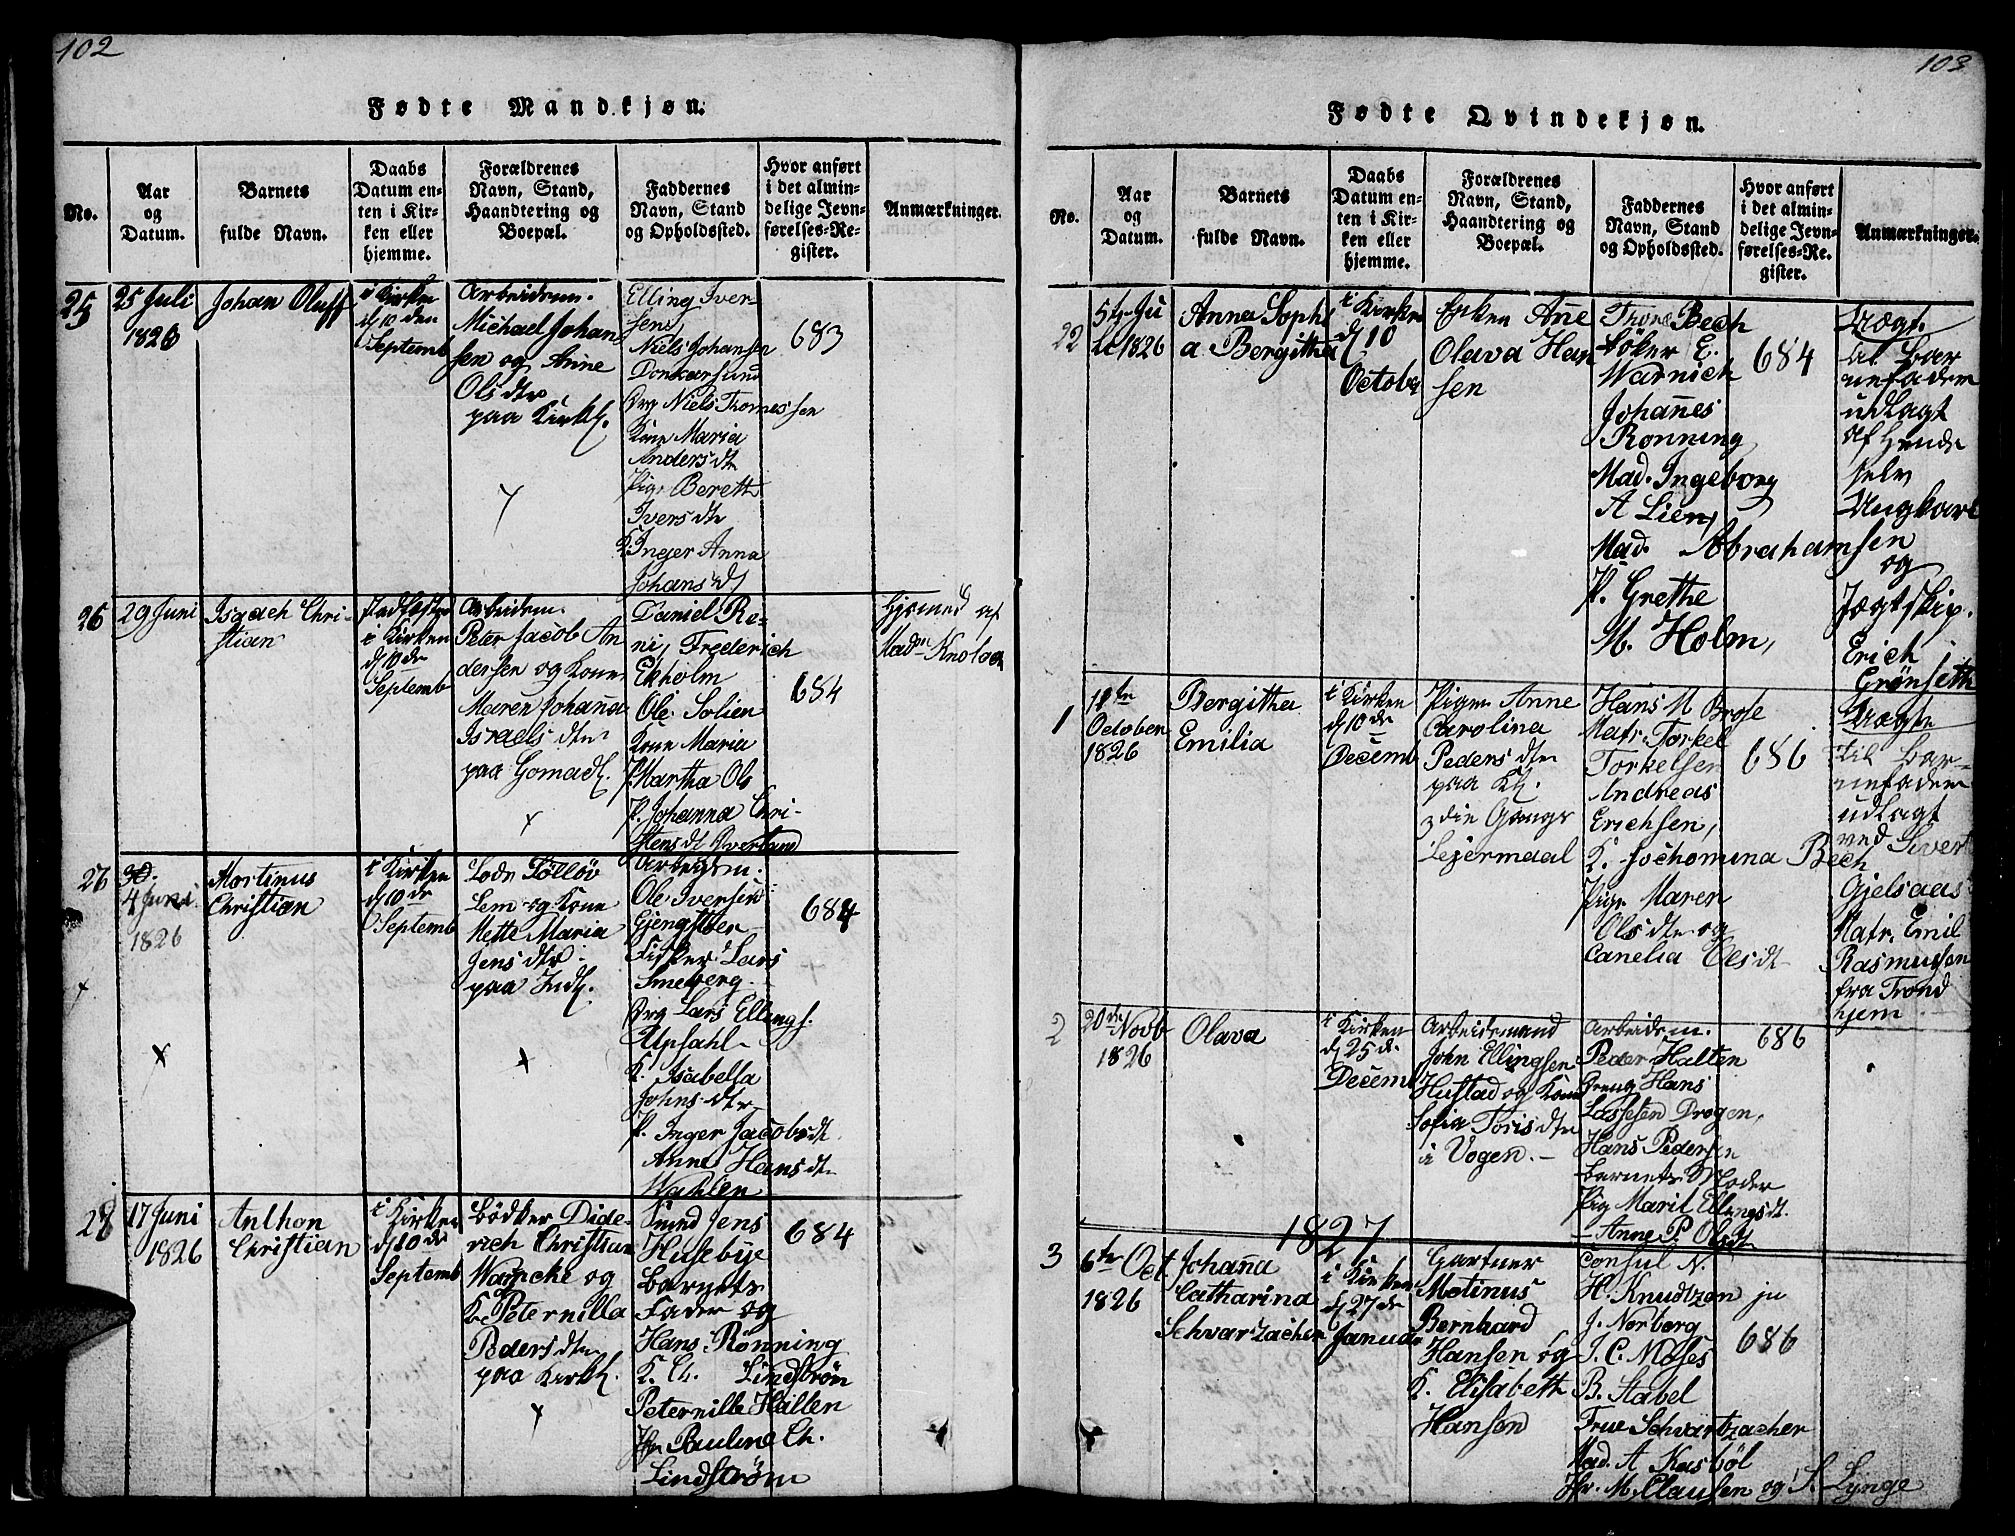 102
Fødte Mandkjøn.
No.
Aar
og
Datum.
Barnets
fulde Navn.
Daabs
Datum en-
ten i Kir-
ken eller
hjemme.
Forældrenes
Navn, Stand,
Haandtering og
Boepæl.
Faddernes
Navn, Stand
og Opholdssted.
Hvor anført
i det almin-
delige Jevn-
førelses-Re-
gister.
Anmærkninger.
25
25 Juli
1826
Johan Oluff
i Kirken
d 10 den
Septemb
Arbeidsm.
Michael Johan
sen og Anne
Ols dtr
paa Kirkl.
Elling Iver
sen,
Niels Johansen
Drg Niels Tromessen
Kone Maria
Anders dtr
Pige Bereth
Ivers dtr
K. Inger Anna
Johans d
683
26
29 Juni
Isaach Chri-
stian
i Kirken
d 10 de
Septemb
Arbeidsm.
Peter Jacob An
dersen og Kone
Maren Johana
Israels dtr
paa Gomal.
Daniel Re-
ni, Frederich
Ekholm
Ole Solien
Kone Maria
P. Martha Ols
P. Johanna Chri-
stens dt Overland
684
Hjemed af
Mad.
27
4 Juni
1826
Mortinus
Christian
i Kirken
d 10 de
Septemb
Lods Tølløv
Lem og Kone
Mette Maria
Jens dtr
paa Indl.
Arbeidsm.
Ole Iversen
Gjengstøer
Fisker Lars
Smeberg
Drg Lars Ellings.
Upsahl
K. Isabella
Johns dtr
P. Inger Jacobs dt
Anne Hans dtr
Wahlen
684
28
17 Juni
1826
Anthon
Christian
i Kirken
d 10 de
Septemb
Bødker Dide-
rich Christian
Warncke og
K. Peternilla
Peders dtr
paa Kirkl.
Svend Jens
Husebye
Barnets
Fader og
Hans Rønning
K. Ch. Lindstrøn
Peternille Hallen
Jfr. Pauline Ch.
Lindstrøm
684
103
Fødte Qvindekjøn.
No.
Aar
og
Datum.
Barnets
fulde Navn.
Daabs
Datum en-
ten i Kir-
ken eller
hjemme.
Forældrenes
Navn, Stand,
Haandtering og
Boepæl.
Faddernes
Navn, Stand
og Opholdssted.
Hvor anført
i det almin-
delige Jevn-
førelses-Re-
gister.
Anmærkninger.
22
5te Ju
li 1826
Anna Sophi
a Bergitha
i Kirken
d 10
October
Enken Ane
Olava Han
sen
Bech
Bøker E.
Warnich
Johañes
Rønning
Mad. Ingeborg
A Lien,
Mad. Abrahamsen
P. Grethe
M. Holm,
684
Uægte
til Bar
nefader
udlagt
af Hende
selv
Ungkarl
og
Jægtskip.
Erich
Grønseth
1
11te
October
1826
Bergitha
Emilia
i Kirken
d 10 de
Decemb
Pige Anne
Carolina
Peders dtr
paa Kl.
3die Gangs
Lejermaal
Hans M Brose
Matr. Torkel
Torkelsen
Andreas
Erichsen,
K. Jochomina Bech
Pige Maren
Ols dtr og
Canelia Ols dt
686
Uægte
til Bar-
nefader
udlagt
ved Sivert
Gjelsaas
Matr. Emil
Rasmussen
fra Trond
hjem
2
20 de Novb
1826
Olava
i Kirken
d 25 de
Decemb
Arbeidsmand
John Ellingsen
Hustad og Kone
Sofia Toris dtr
i Vogen.
Arbeidsm.
Peder Halten
Dreng Hans
Lassesen Drogen,
Hans Pedersen
Barnets Moder
Pig Marit Ellings dt.
Anne P. Ols dt
686
1827
3
6te Oct
1826
Johaña
Catharina
Schvartzacher
i Kirken
d 27 de
Januar
Gartner
Motinus
Bernhard
Hansen og
K. Elisabeth
Hansen
Consul N.
H. Knudtzon ju
J. Norborg
J. C. Moses
B. Stabel
Frue Schvartzacher
Mad. A Kasbøl
Jfr. M. Clausen og S. Lynge
686